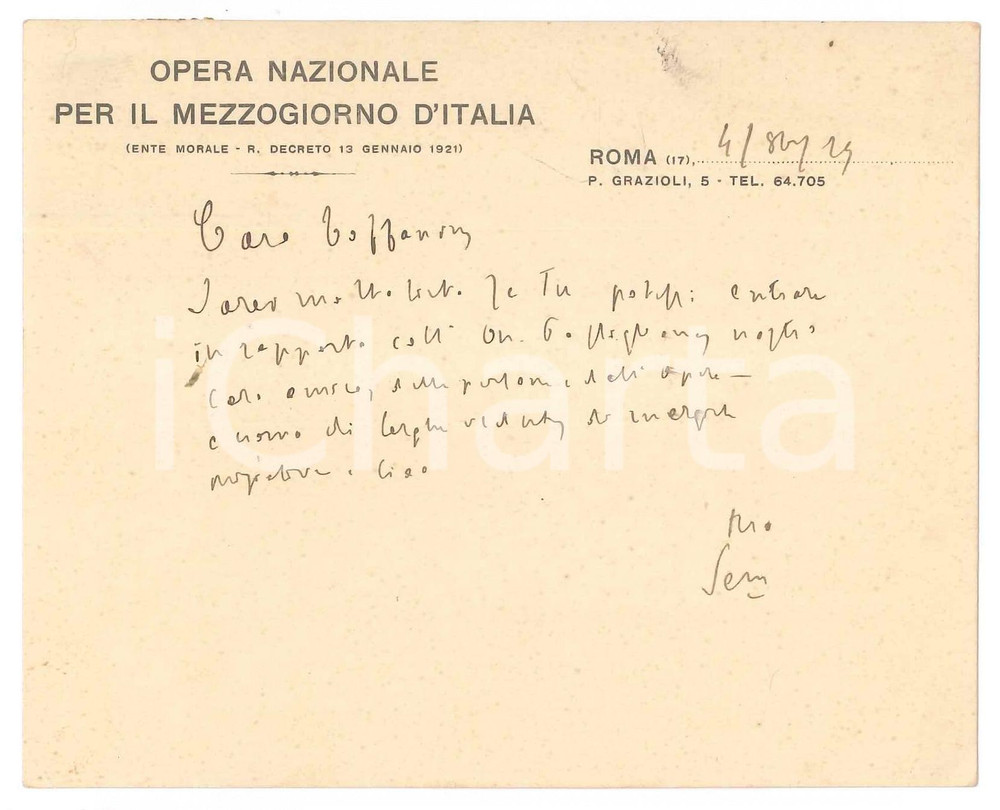 OPERA NAZIONALE
PER IL MEZZOGIORNO D'ITALIA
(ENTE MORALE - R. DECRETO 13 GENNAIO 1921)
ROMA (17), 4/ 29
P. GRAZIOLI, 5 - TEL. 64.705
Caro Toffanin
Sarei molto lieto se Tu potessi entrare
in rapporto coll' On. nostro
caro amico, e dell' opera —
e uomo di larghe vedute, di
Ciao
tuo
iCharta